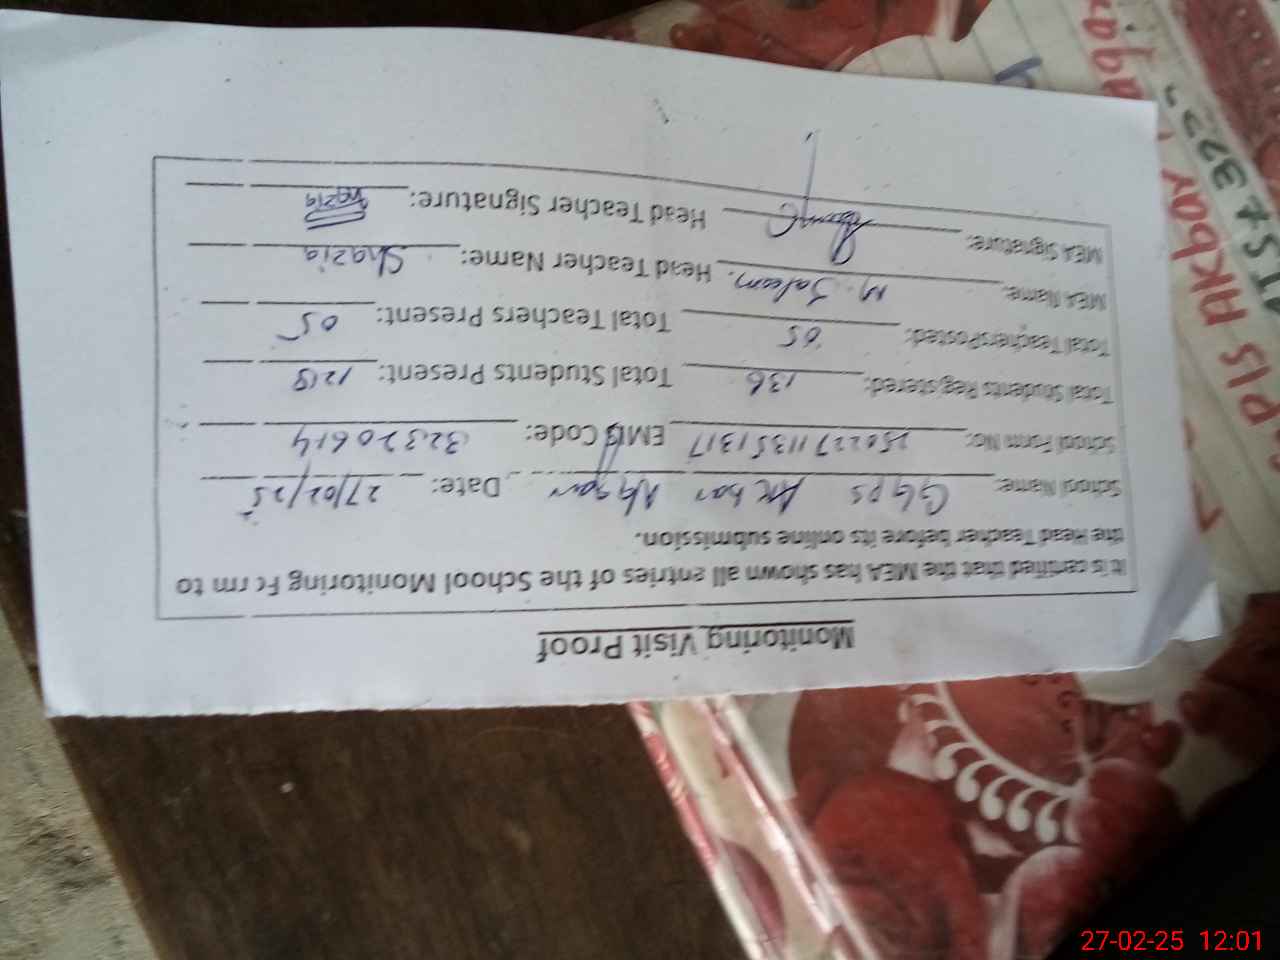 Monitoring Visit Proof
It is certified that the MEA has shown all entries of the School Monitoring Form to
the Head Teacher before its online submission.
School Name: GGPS Akbar Nagar Date: 27/02/25
School Form No: 25022711351317 EMIS Code: 32320614
Total Students Registered: 136 Total Students Present:
Total TeachersPosted: 05 Total Teachers Present: 05
MEA Name: M. Saleem. Head Teacher Name: Shazia
MEA Signature: Head Teacher Signature: Shazia
27-02-25 12:01